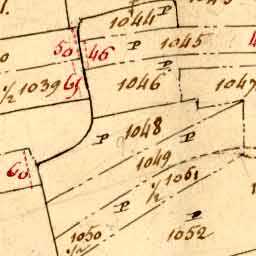 1044
P
50 46 P 1045 4
P
½ 1039 65 1046 1047
P 1048 P
1049
60
½ 1061
P
P
1050 1052
½